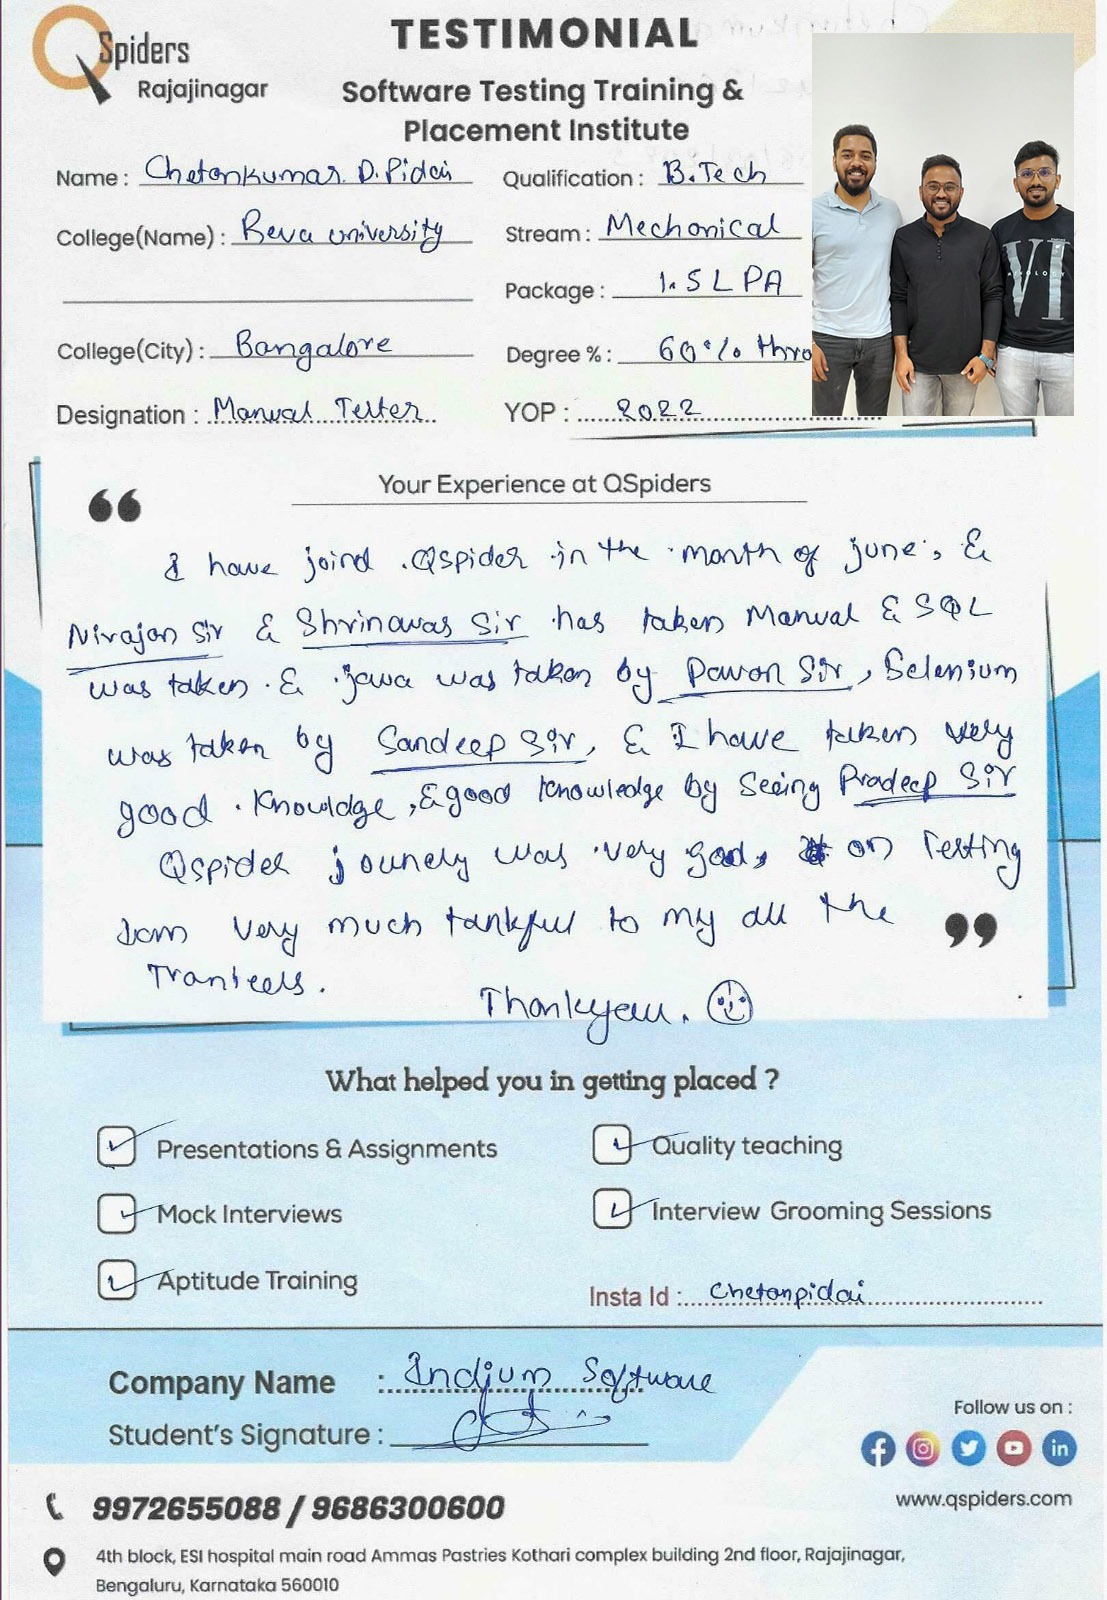 QSpiders
Rajajinagar
TESTIMONIAL
Software Testing Training &
Placement Institute
Name : Chetankumar. D. Pidai
Qualification : B.Tech
College(Name) : Reva university
Stream : Mechanical
Package : 1.5 LPA
College(City) : Bangalore
Degree % : 60% thro
Designation : Manual Tester
YOP : 2022
Your Experience at QSpiders
I have joind Qspider in the month of june, &
Nirajan Sir & Shrinawas Sir has taken Manual & SQL
was taken & java was taken by Pawan Sir, Selenium
was taken by Sandeep Sir, & I have taken very
good Knowldge, & good knowledge by Seeing Pradeep Sir
Qspider jounely was very good, on Testing
Iam very much tankful to my all the
Thankyou.
What helped you in getting placed ?
Presentations & Assignments
Quality teaching
Mock Interviews
Interview Grooming Sessions
Aptitude Training
Insta Id : Chetanpidai
Company Name : Indium Software
Student's Signature :
Follow us on :
9972655088 / 9686300600
www.qspiders.com
4th block, ESI hospital main road Ammas Pastries Kothari complex building 2nd floor, Rajajinagar,
Bengaluru, Karnataka 560010